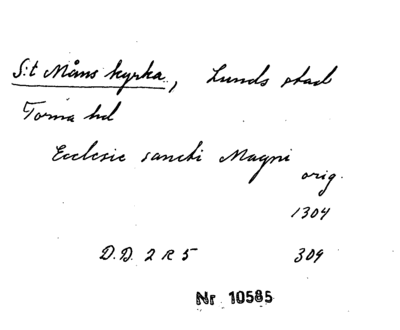 S:t Måns kyrka, Lunds stad
Torna hd
Ecclesie sancti Magni
orig.
1304
D.D. 2 R 5 309
Nr 10585